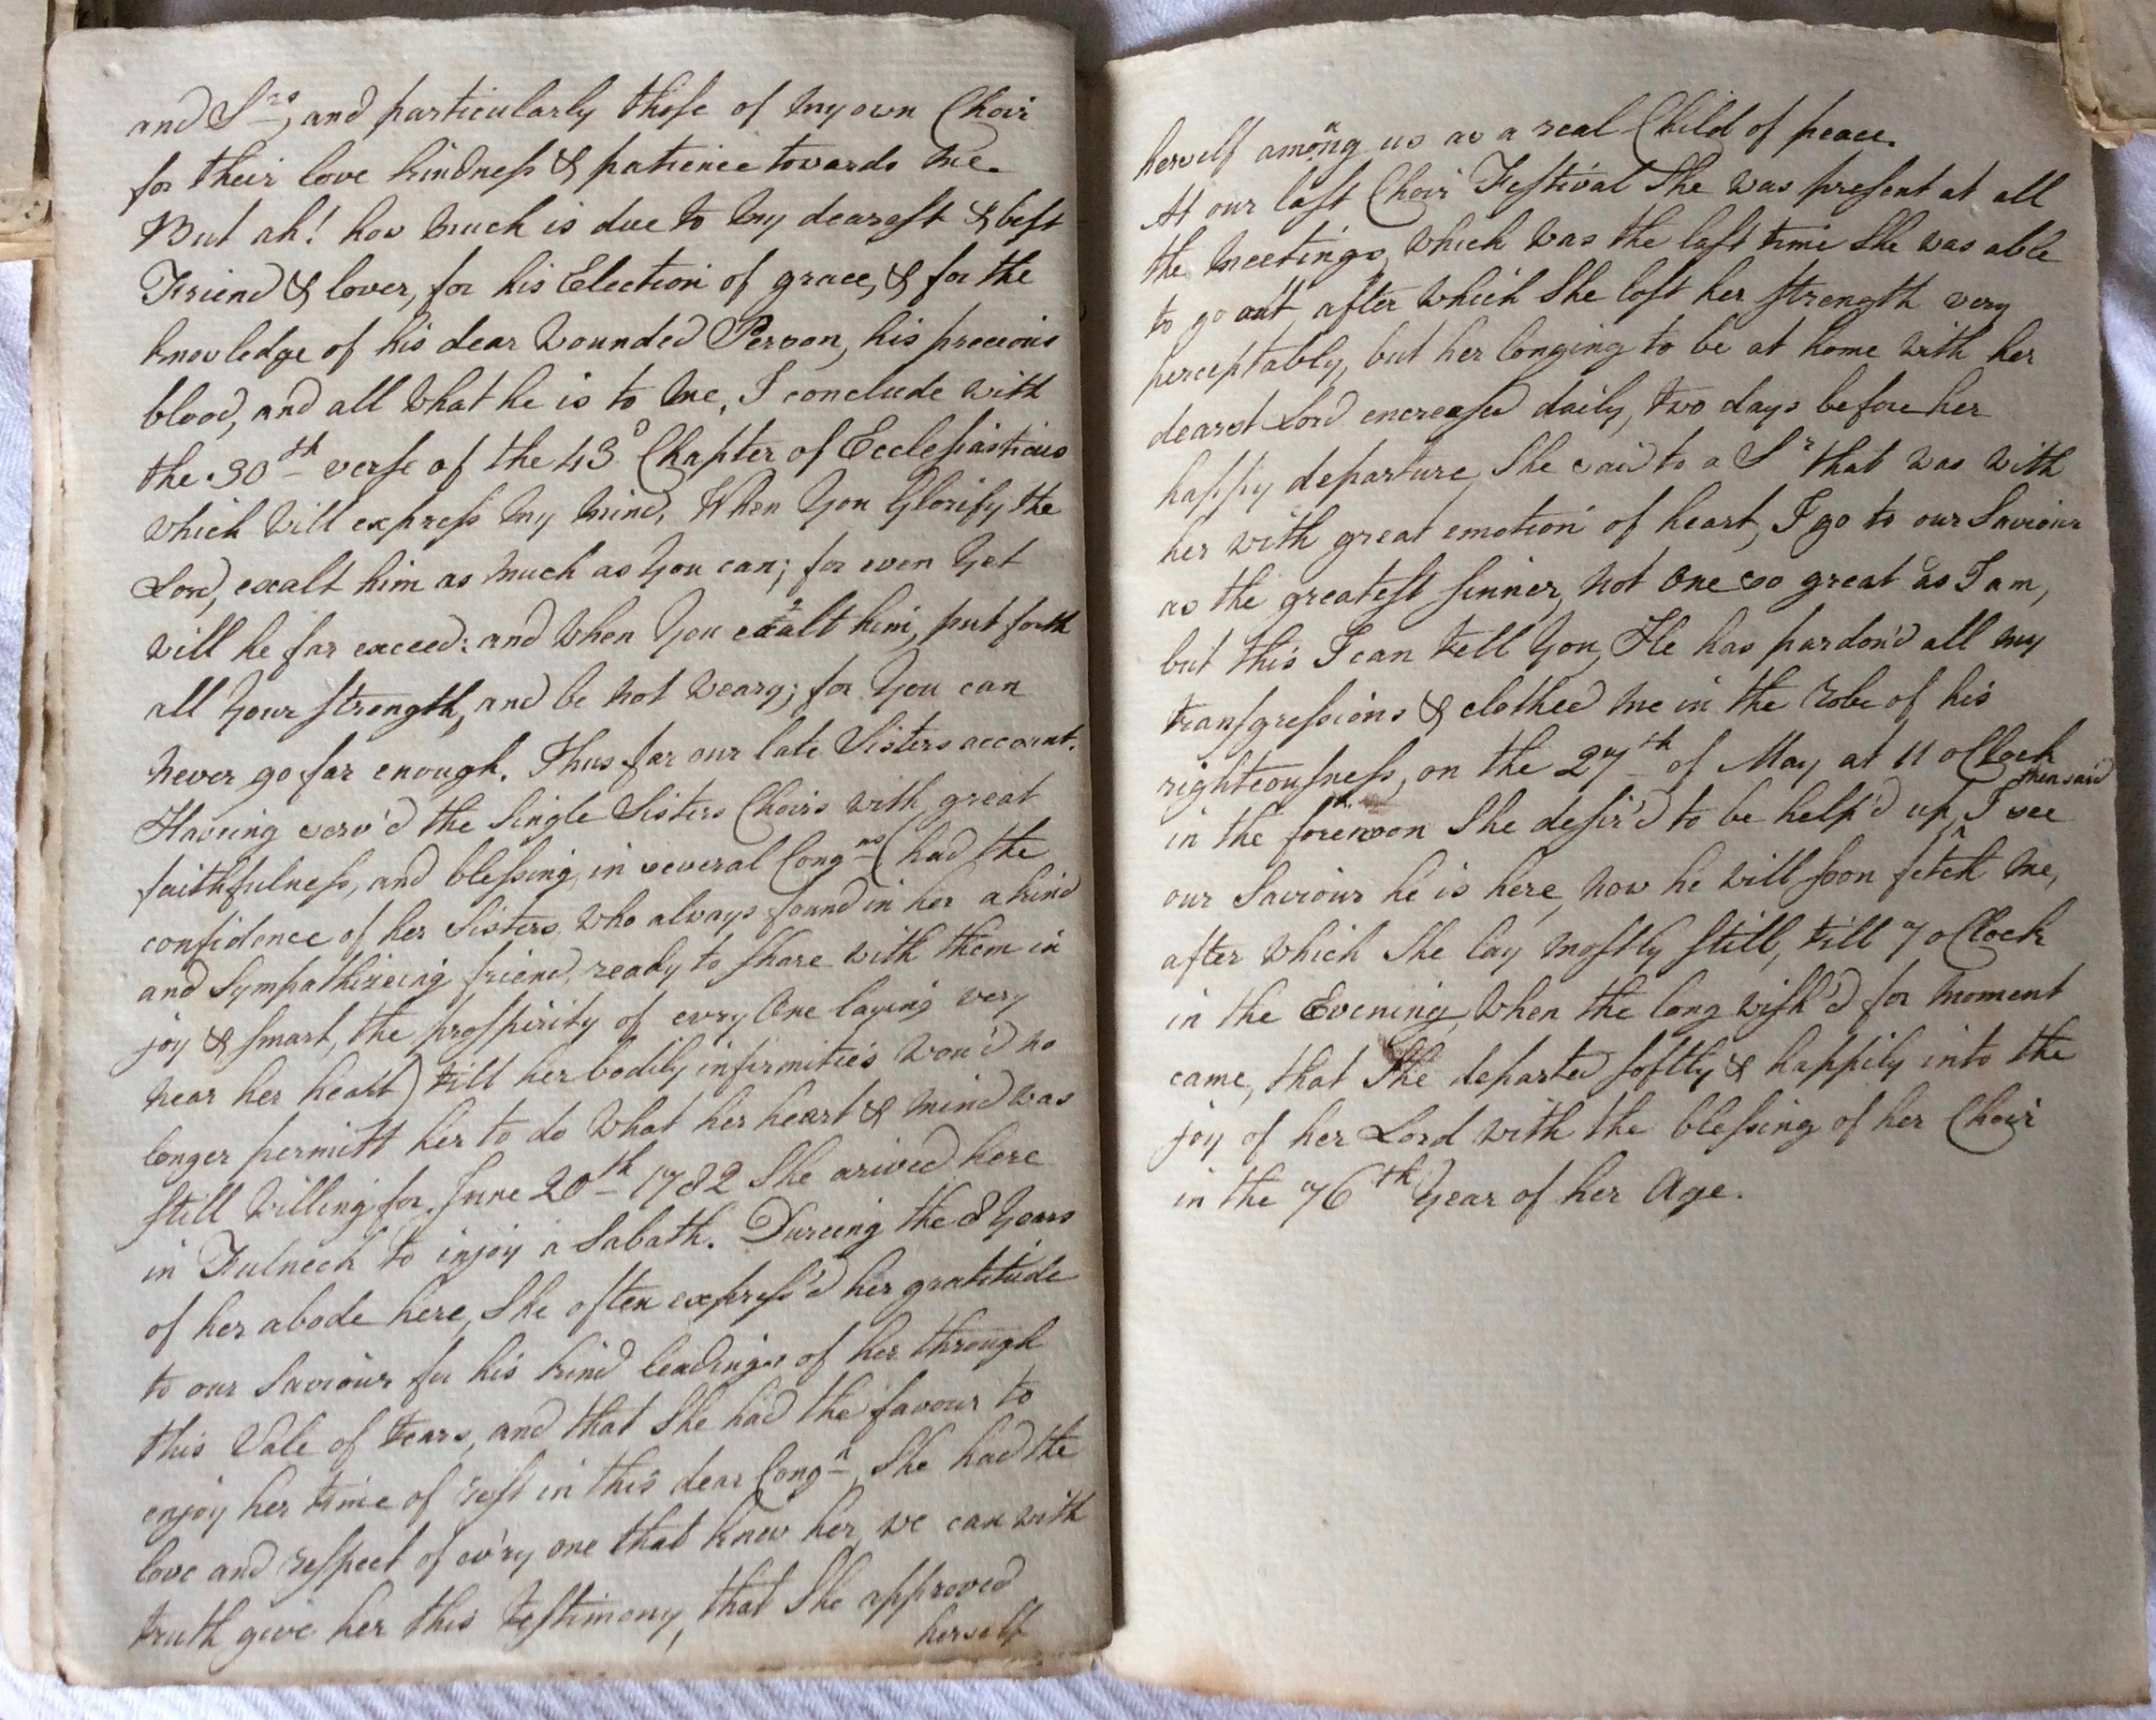 and Srs, and particularly those of my own Choir
for their love kindness & patience towards me.
But ah! how much is due to my dearest & best
Friend & lover, for his Election of grace, & for the
knowledge of his dear wounded Person, his precious
blood, and all what he is to me, I conclude with
the 30th verse of the 43d Chapter of Ecclesiasticus
which will express my mind, When you glorify the
Lord, exalt him as much as you can; for even yet
will he far exceed: and when you exalt him, put forth
all your strength, and be not weary; for you can
never go far enough. Thus far our late Sisters account.
Haveing serv'd the Single Sisters Choirs with great
faithfulness, and blessing, in several Congns (had the
confidence of her Sisters who always found in her a kind
and Sympathizeing friend, ready to share with them in
joy & smart, the prosspirity of evry One laying very
near her heart) till her bodily infirmities wou'd no
longer permitt her to do what her heart & mind was
still willing for. June 20th 1782 She arived here
in Fulneck to injoy a Sabath. Dureing the 8 Years
of her abode here, She often express'd her gratitude
to our Saviour for his kind leadings of her through
this Vale of tears, and that She had the favour to
enjoy her time of rest in this dear Congn, She had the
love and respect of ev'ry one that knew her, we can with
truth give her this testimony, that She approved
herself
herself among us as a real Child of peace.
At our last Choir Festival She was present at all
the meetings, which was the last time She was able
to go out, after which She lost her strength very
perceptably, but her longing to be at home with her
dearest Lord encreased daily, two days before her
happy departure She said to a Sr that was with
her with great emotion of heart, I go to our Saviour
as the greatest sinner, not one so great as I am,
but this I can tell you, He has pardon'd all my
transgressions & clothed me in the robe of his
righteousness, on the 27th of May at 11 oClock
in the forenoon She desir'd to be help'd up, then said I see
our Saviour he is here, now he will soon fetch me,
after which She lay mostly still, till 7 oClock
in the Evening, when the long wish'd for moment
came, that She departed softly & happily into the
joy of her Lord with the blessing of her Choir
in the 76th Year of her Age.